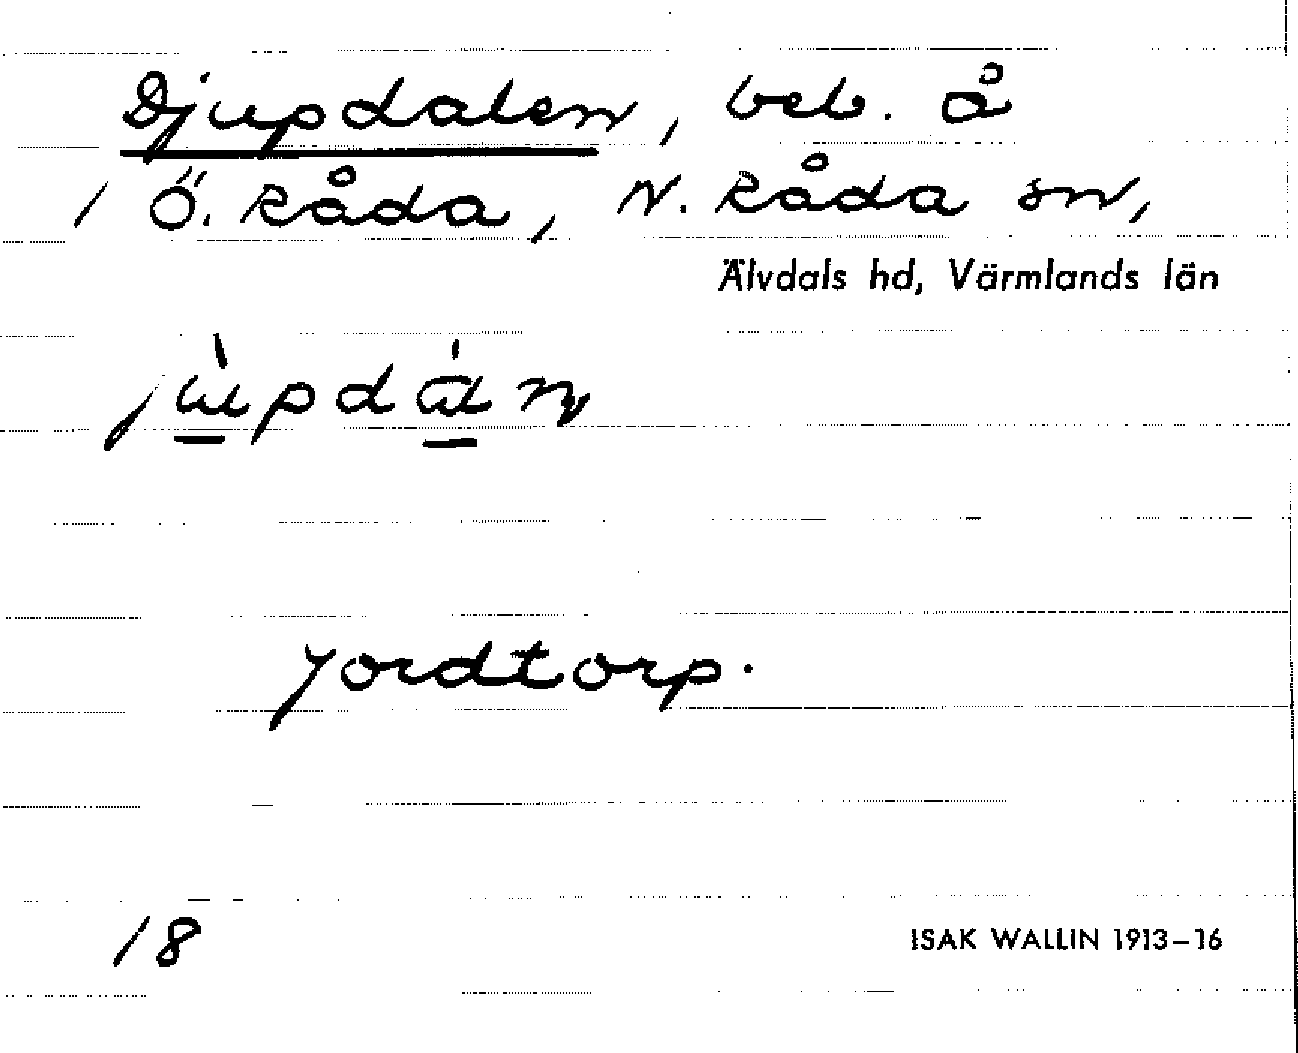 Djupdalen, beb. å
1 Ö. Råda, N. Råda sn,
Älvdals hd, Värmlands län
jùpdán
Jordtorp.
18
ISAK WALLIN 1913–16